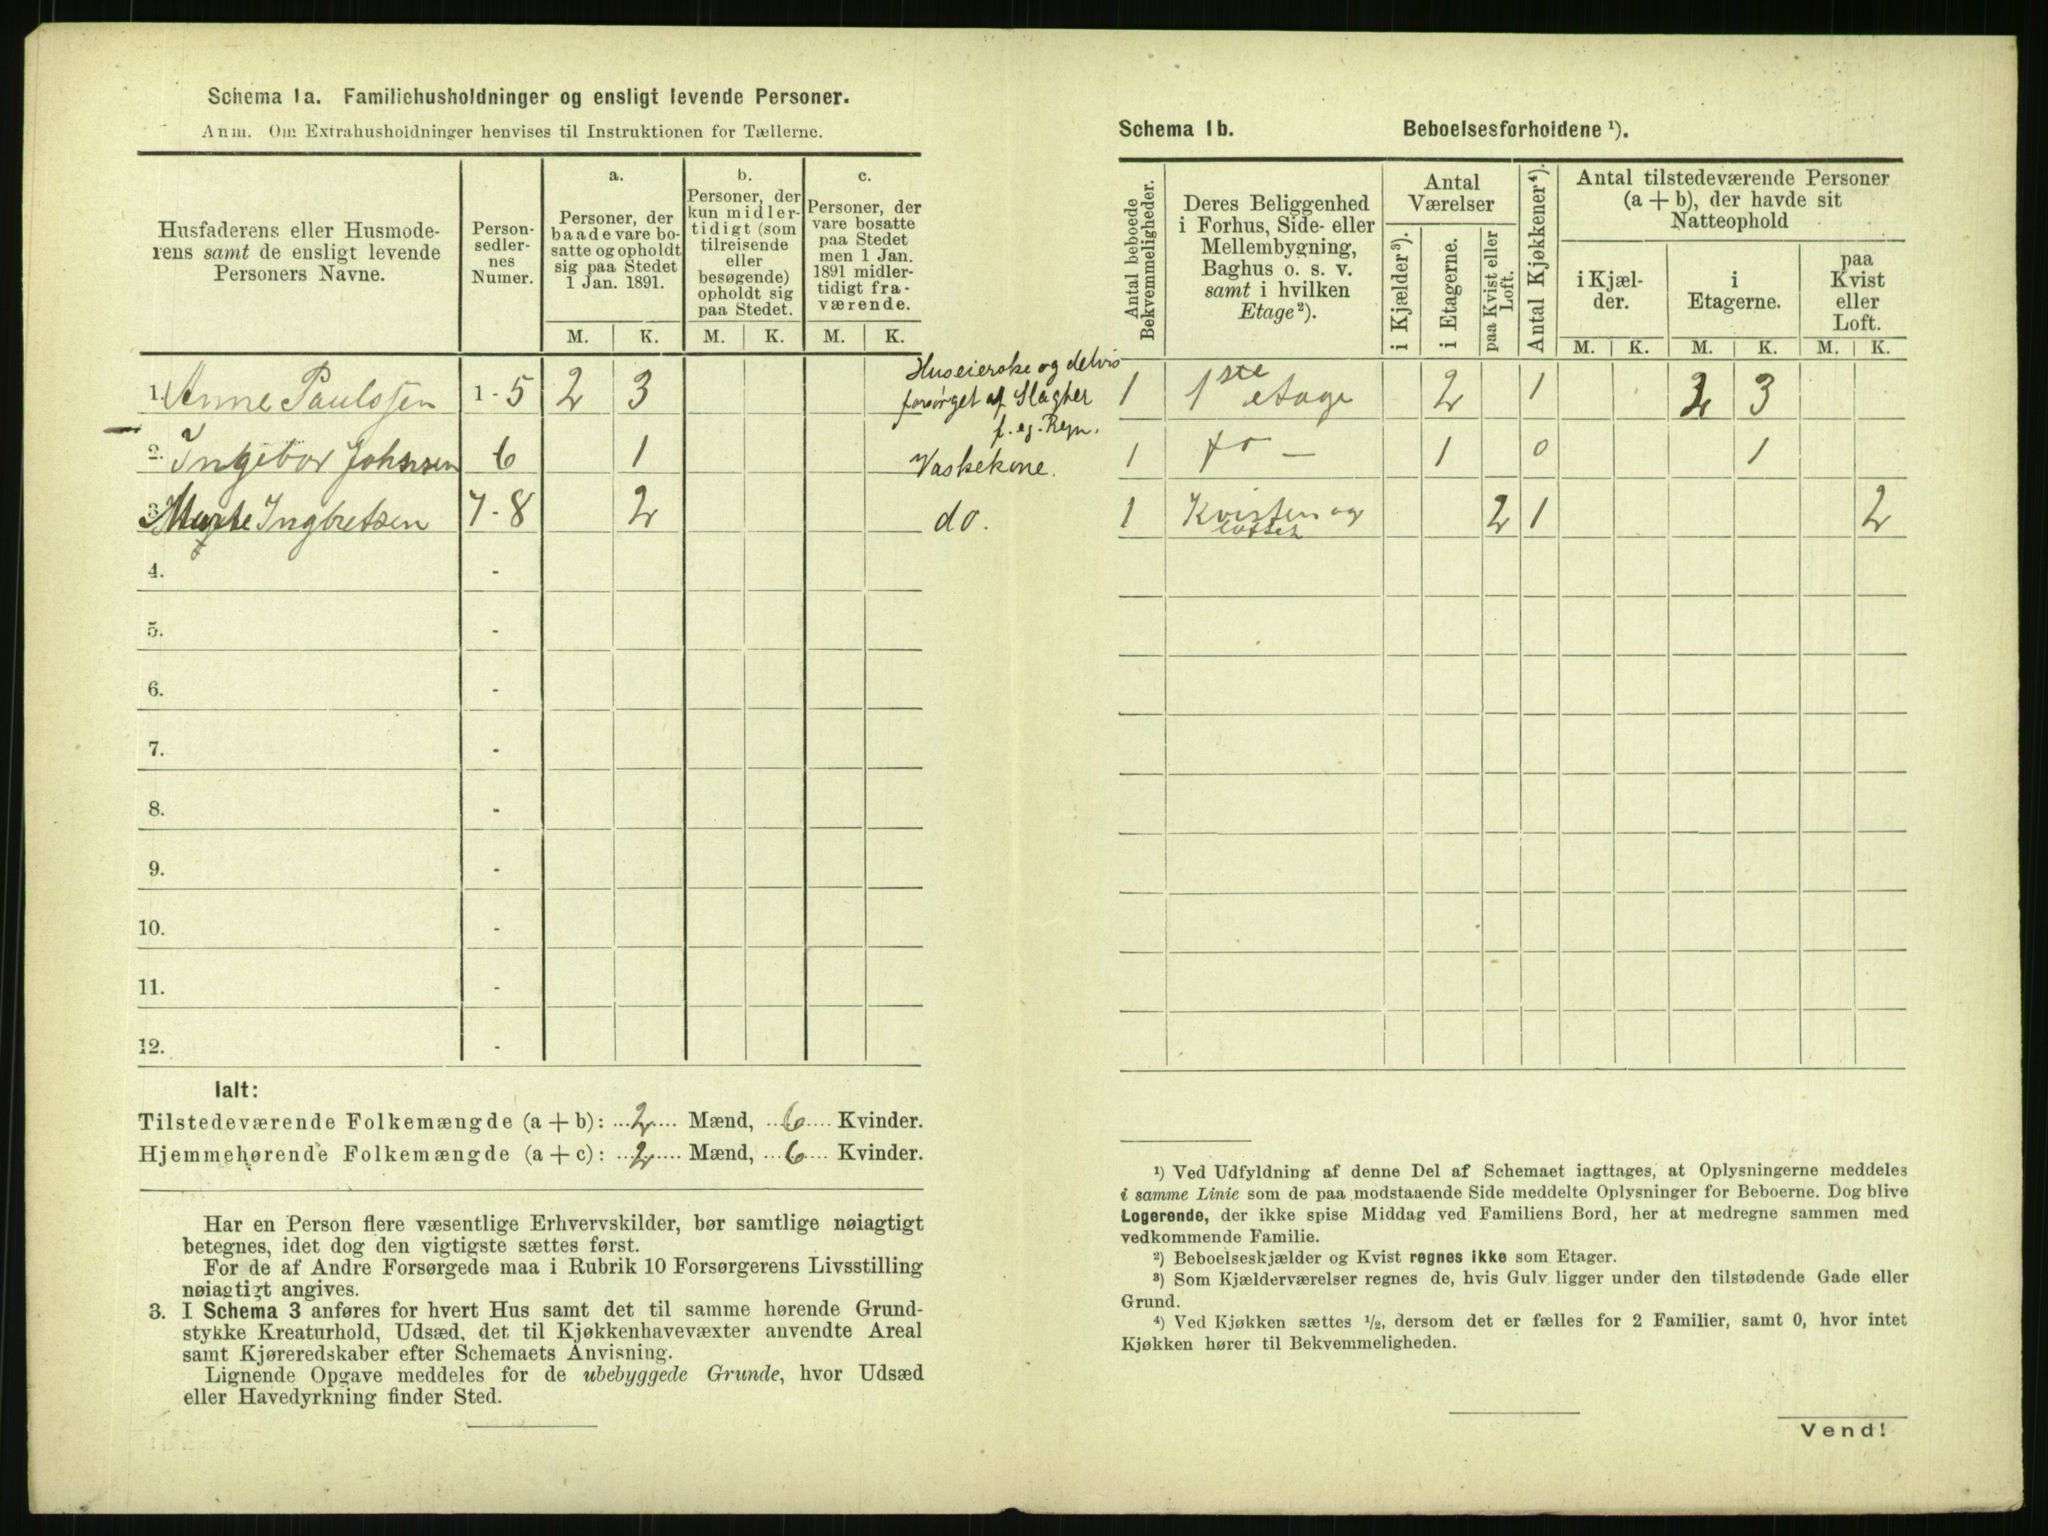 Schema 1a. Familiehusholdninger og ensligt levende Personer.
Anm. Om Extrahusholdninger henvises til Instruktionen for Tællerne.
Husfaderens eller Husmode-
rens samt de ensligt levende
Personers Navne.
Person-
sedler-
nes
Numer.
a.
Personer, der
baade vare bo-
satte og opholdt
sig paa Stedet
1 Jan. 1891.
b.
Personer, der
kun midler-
tidigt (som
tilreisende
eller
besøgende)
opholdt sig
paa Stedet.
c.
Personer, der
vare bosatte
paa Stedet
men 1 Jan.
1891 midler-
tidigt fra-
værende.
M. K. M. K. M. K.
1. Anne Paulssen 1 - 5 2 3
Huseierske og delvis
forsørget af Slagter
f. eg. Regn.
2. Ingebor Johnsen 6 1 Vaskekone.
3. Marte Ingbretsen 7 - 8 2 do.
4. -
5. -
6. -
7. -
8. -
9. -
10. -
11. -
12. -
Ialt:
Tilstedeværende Folkemængde (a + b): 2 Mænd, 6 Kvinder.
Hjemmehørende Folkemængde (a + c): 2 Mænd, 6 Kvinder.
Har en Person flere væsentlige Erhvervskilder, bør samtlige nøiagtigt
betegnes, idet dog den vigtigste sættes først.
For de af Andre Forsørgede maa i Rubrik 10 Forsørgerens Livsstilling
nøiagtigt angives.
3. I Schema 3 anføres for hvert Hus samt det til samme hørende Grund-
stykke Kreaturhold, Udsæd, det til Kjøkkenhavevæxter anvendte Areal
samt Kjøreredskaber efter Schemaets Anvisning.
Lignende Opgave meddeles for de ubebyggede Grunde, hvor Udsæd
eller Havedyrkning finder Sted.
Schema 1b. Beboelsesforholdene ¹).
Antal beboede
Bekvemmeligheder.
Deres Beliggenhed
i Forhus, Side- eller
Mellembygning,
Baghus o. s. v.
samt i hvilken
Etage²).
Antal
Værelser
i Kjælder³).
i Etagerne.
paa Kvist eller
Loft.
Antal Kjøkkener⁴).
Antal tilstedeværende Personer
(a + b), der havde sit
Natteophold
i Kjæl-
der.
i
Etagerne.
paa
Kvist
eller
Loft.
M. K. M. K. M. K.
1 1ste etage 2 1 2 3
1 do — 1 0 1
1 Kvisten og
loftet 2 1 2
¹) Ved Udfyldning af denne Del af Schemaet iagttages, at Oplysningerne meddeles
i samme Linie som de paa modstaaende Side meddelte Oplysninger for Beboerne. Dog blive
Logerende, der ikke spise Middag ved Familiens Bord, her at medregne sammen med
vedkommende Familie.
²) Beboelseskjælder og Kvist regnes ikke som Etager.
³) Som Kjælderværelser regnes de, hvis Gulv ligger under den tilstødende Gade eller
Grund.
⁴) Ved Kjøkken sættes ½, dersom det er fælles for 2 Familier, samt 0, hvor intet
Kjøkken hører til Bekvemmeligheden.
Vend!